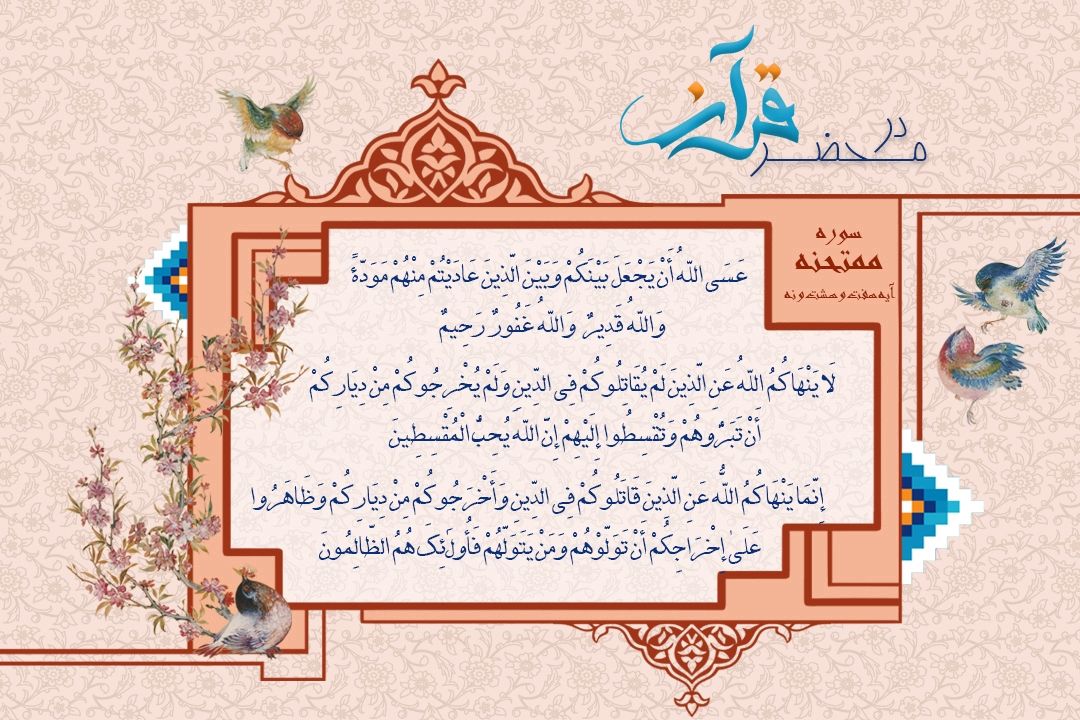 در محضر قرآن
سوره
ممتحنه
آیه هفت و هشت و نه
عَسَى اللّهُ أَنْ يَجْعَلَ بَيْنَكُمْ وَبَيْنَ الَّذِينَ عَادَيْتُمْ مِنْهُمْ مَوَدَّةً
وَاللّهُ قَدِيرٌ وَاللّهُ غَفُورٌ رَحِيمٌ
لَا يَنْهَاكُمُ اللّهُ عَنِ الَّذِينَ لَمْ يُقَاتِلُوكُمْ فِى الدِّينِ وَلَمْ يُخْرِجُوكُمْ مِنْ دِيَارِكُمْ
أَنْ تَبَرُّوهُمْ وَتُقْسِطُوا إِلَيْهِمْ إِنَّ اللّهَ يُحِبُّ الْمُقْسِطِينَ
إِنَّمَا يَنْهَاكُمُ اللَّهُ عَنِ الَّذِينَ قَاتَلُوكُمْ فِى الدِّينِ وَأَخْرَجُوكُمْ مِنْ دِيَارِكُمْ وَظَاهَرُوا
عَلَىٰ إِخْرَاجِكُمْ أَنْ تَوَلَّوْهُمْ وَمَنْ يَتَوَلَّهُمْ فَأُولَئِكَ هُمُ الظَّالِمُونَ